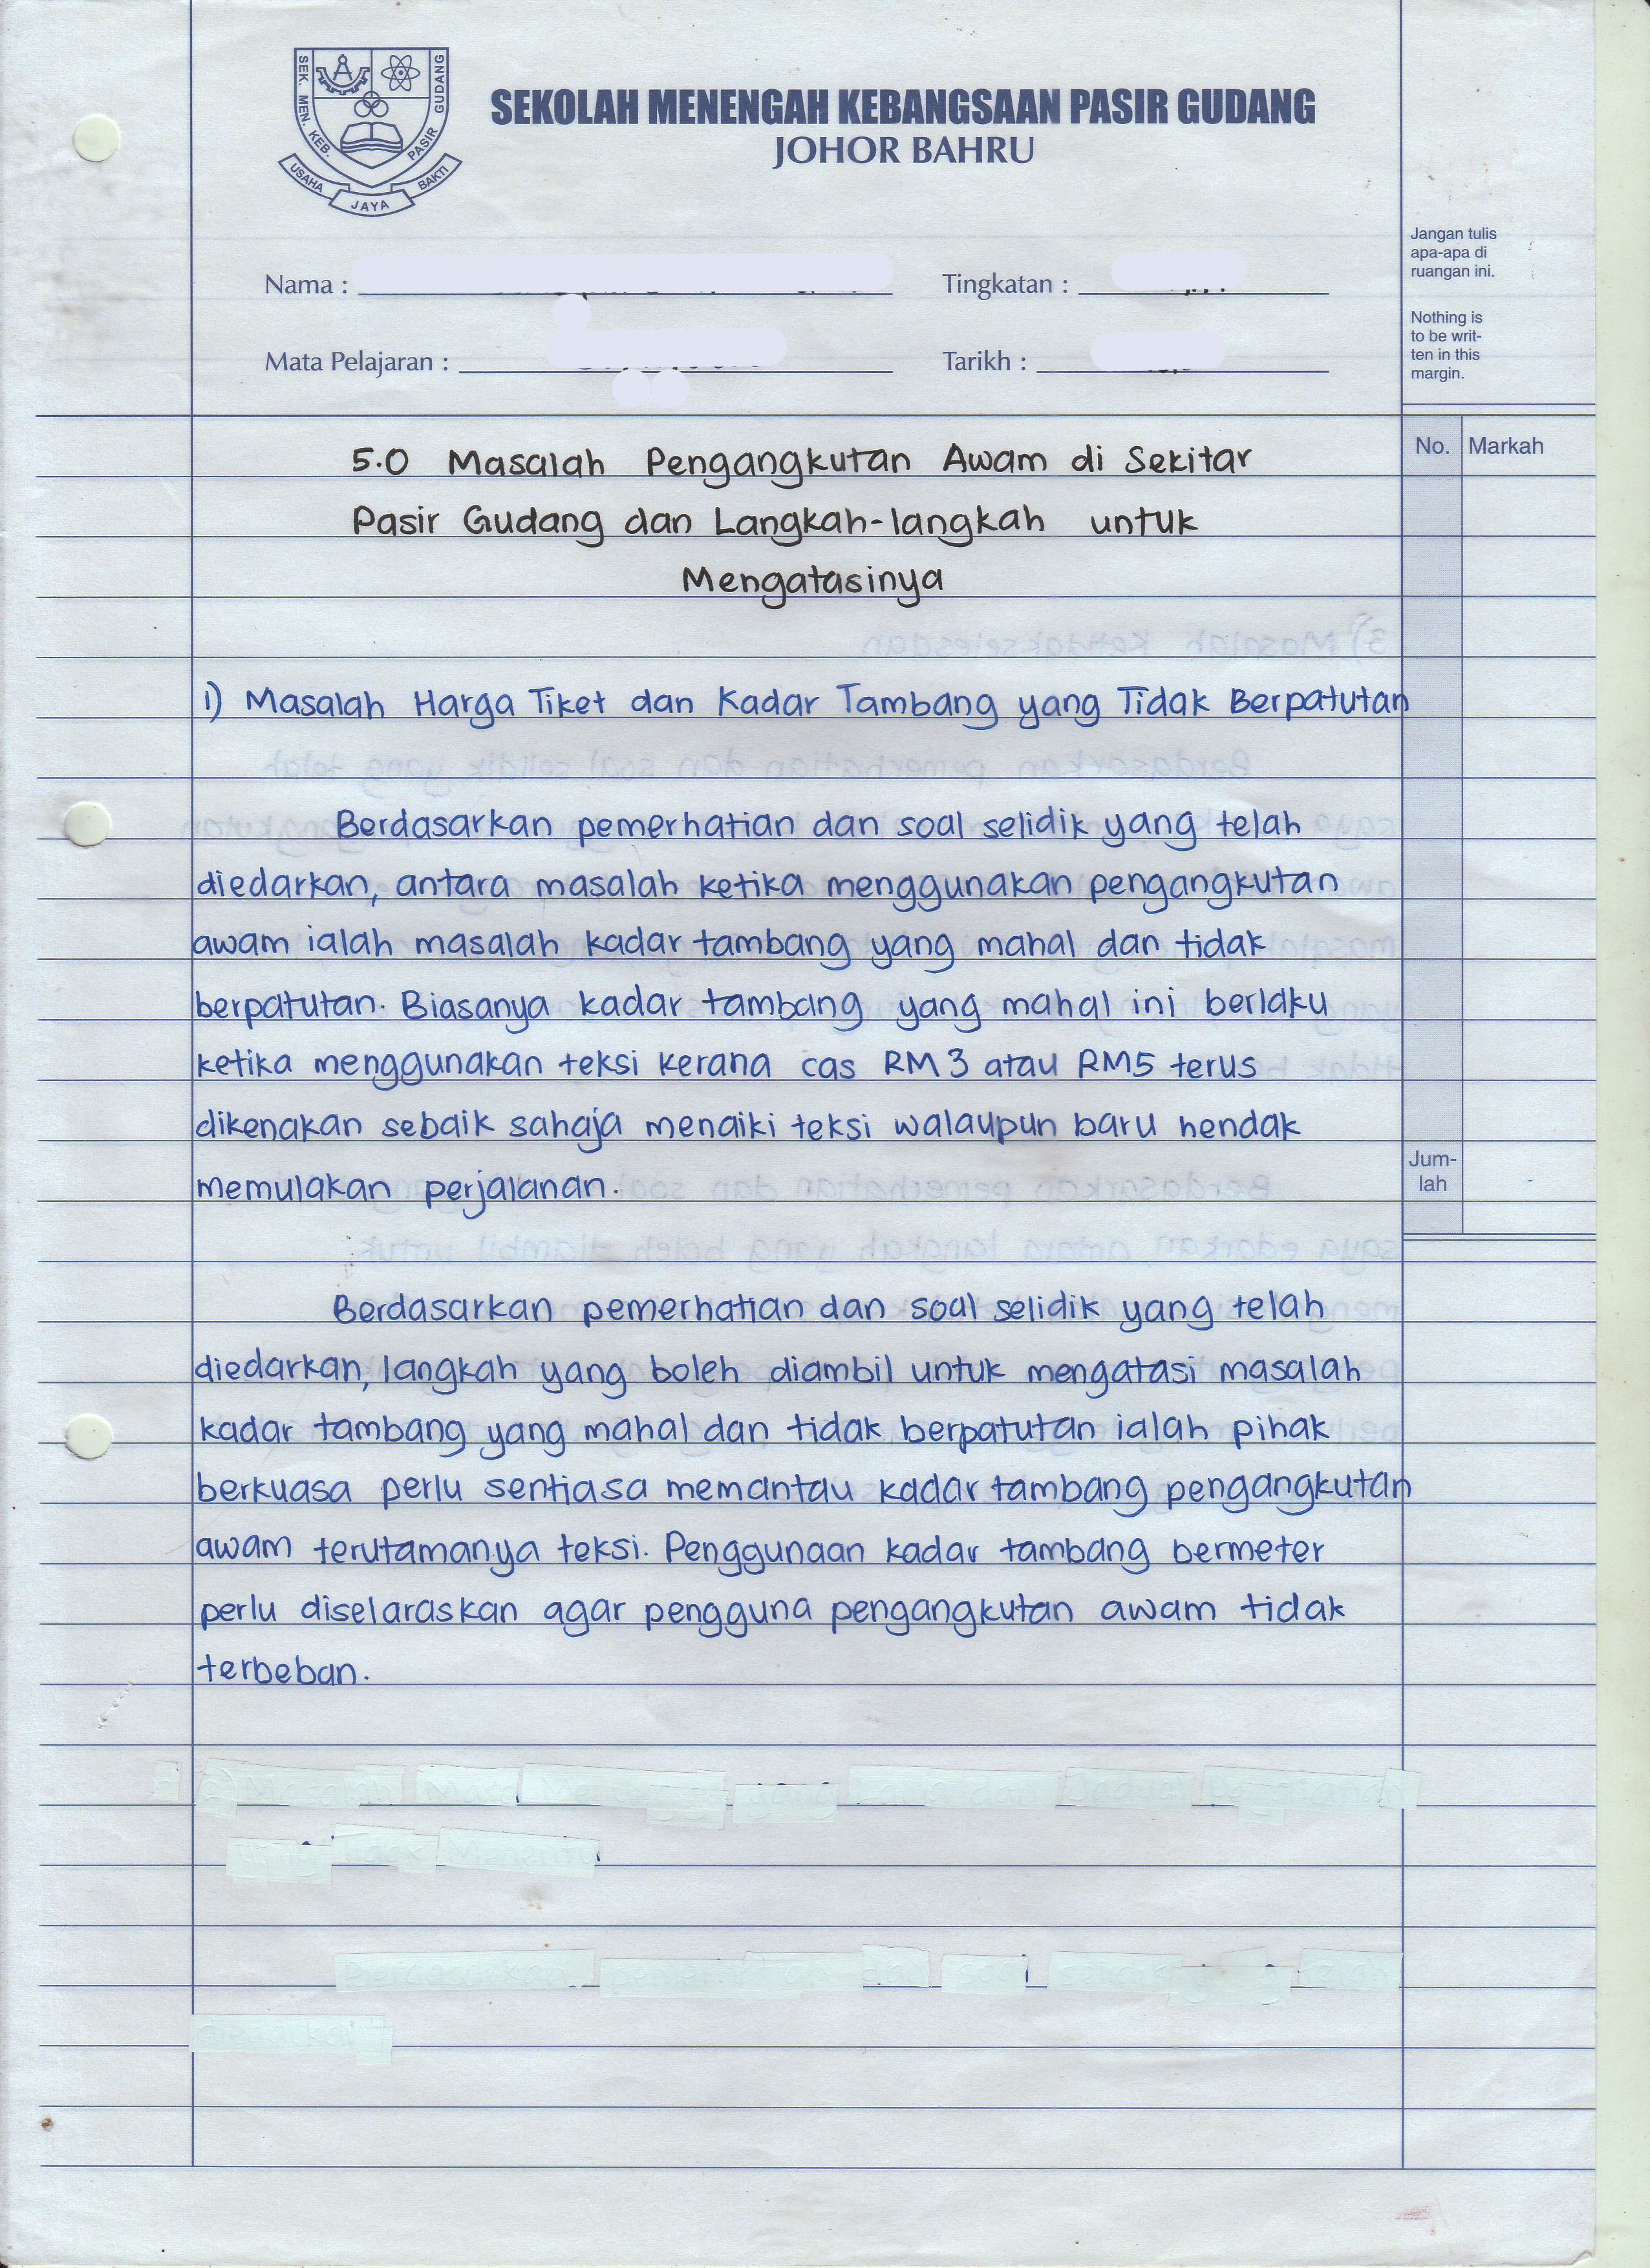 SEK. MEN. KEB. PASIR GUDANG
USAHA JAYA BAKTI
SEKOLAH MENENGAH KEBANGSAAN PASIR GUDANG
JOHOR BAHRU
Jangan tulis
apa-apa di
ruangan ini.
Nama :
Tingkatan :
Nothing is
to be writ-
ten in this
margin.
Mata Pelajaran :
Tarikh :
No. Markah
5.0 Masalah Pengangkutan Awam di Sekitar
Pasir Gudang dan Langkah-langkah untuk
Mengatasinya
1) Masalah Harga Tiket dan Kadar Tambang yang Tidak Berpatutan
Berdasarkan pemerhatian dan soal selidik yang telah
diedarkan, antara masalah ketika menggunakan pengangkutan
awam ialah masalah kadar tambang yang mahal dan tidak
berpatutan. Biasanya kadar tambang yang mahal ini berlaku
ketika menggunakan teksi kerana cas RM 3 atau RM5 terus
dikenakan sebaik sahaja menaiki teksi walaupun baru hendak
memulakan perjalanan.
Jum-
lah
Berdasarkan pemerhatian dan soal selidik yang telah
diedarkan, langkah yang boleh diambil untuk mengatasi masalah
kadar tambang yang mahal dan tidak berpatutan ialah pihak
berkuasa perlu sentiasa memantau kadar tambang pengangkutan
awam terutamanya teksi. Penggunaan kadar tambang bermeter
perlu diselaraskan agar pengguna pengangkutan awam tidak
terbeban.